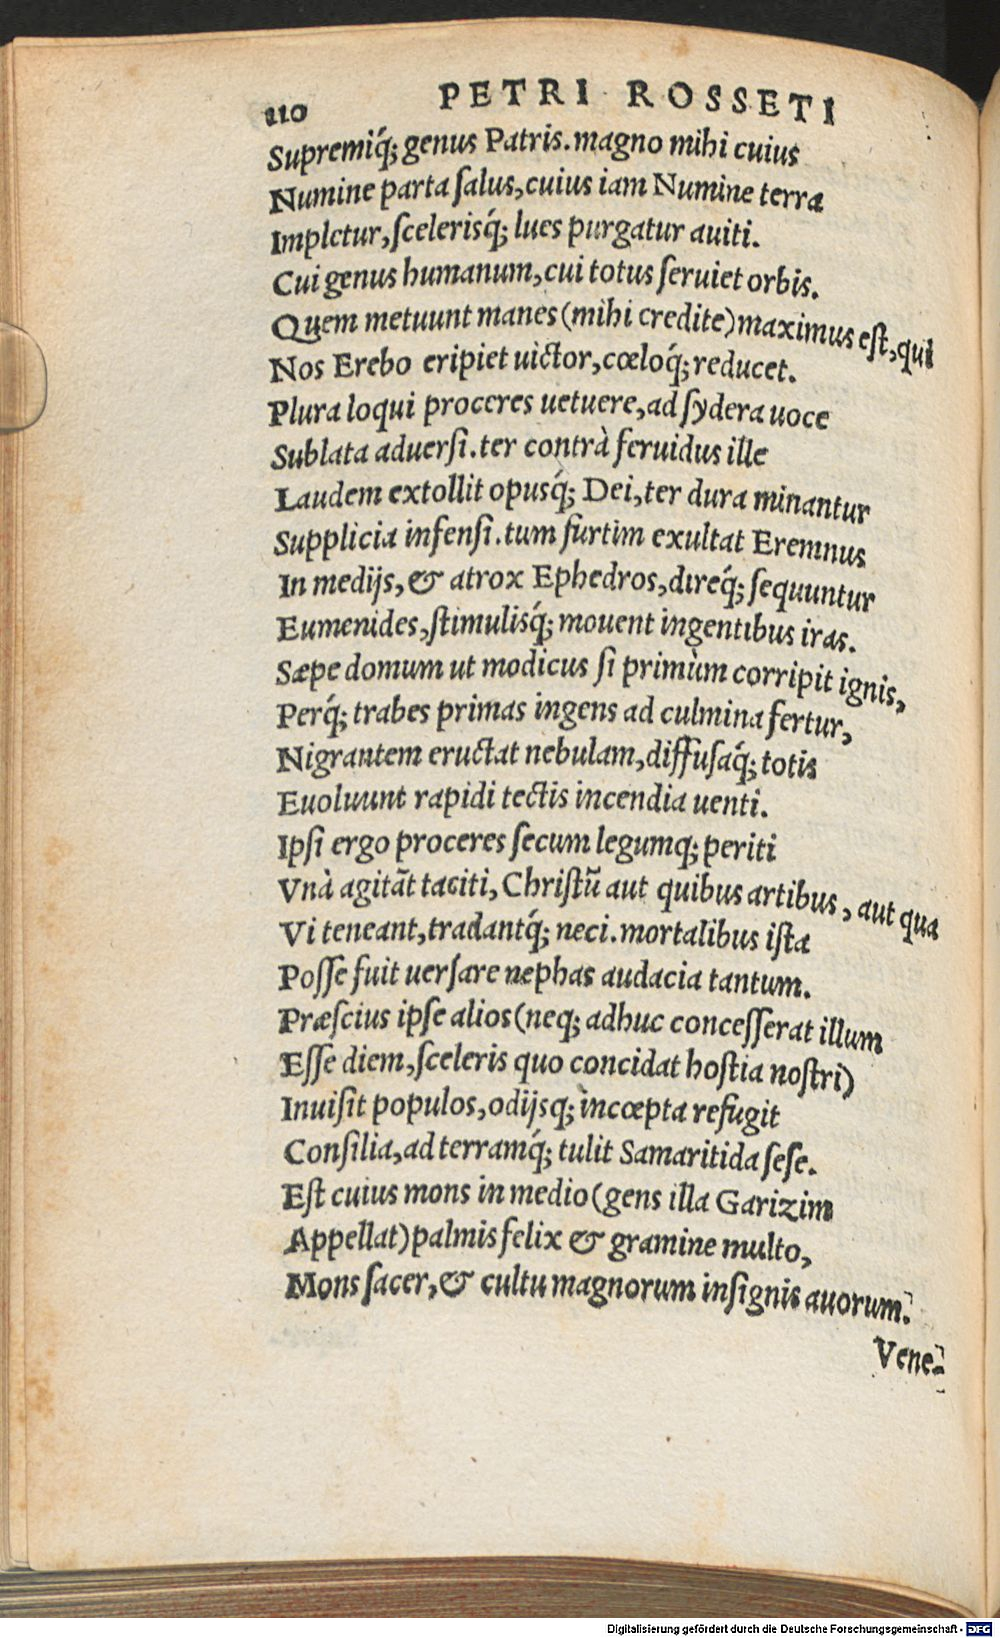 110 PETRI ROSSETI
Supremiq́; genus Patris. magno mihi cuius
Numine parta ſalus, cuius iam Numine terra
Impletur, ſcelerisq́; lues purgatur auiti.
Cui genus humanum, cui totus ſeruiet orbis.
Quem metuunt manes (mihi credite) maximus eſt, qui
Nos Erebo eripiet uictor, cœloq́; reducet.
Plura loqui proceres uetuere, ad ſydera uoce
Sublata aduerſi. ter contrà feruidus ille
Laudem extollit opusq́; Dei, ter dura minantur
Supplicia infenſi. tum furtim exultat Eremnus
In medijs, & atrox Ephedros, direq́; ſequuntur
Eumenides, ſtimulisq́; mouent ingentibus iras.
Sæpe domum ut modicus ſi primùm corripit ignis,
Perq́; trabes primas ingens ad culmina fertur,
Nigrantem eructat nebulam, diffuſaq́; totis
Euoluunt rapidi tectis incendia uenti.
Ipſi ergo proceres ſecum legumq; periti
Vnà agitāt taciti, Chriſtū aut quibus artibus, aut qua
Vi teneant, tradantq́; neci. mortalibus iſta
Poſſe fuit uerſare nephas audacia tantum.
Præſcius ipſe alios (neq; adhuc conceſſerat illum
Eſſe diem, ſceleris quo concidat hoſtia noſtri)
Inuiſit populos, odijsq; incœpta refugit
Conſilia, ad terramq́; tulit Samaritida ſeſe.
Eſt cuius mons in medio (gens illa Garizim
Appellat) palmis felix & gramine multo,
Mons ſacer, & cultu magnorum inſignis auorum.
Vene-
Digitalisierung gefördert durch die Deutsche Forschungsgemeinschaft - DFG